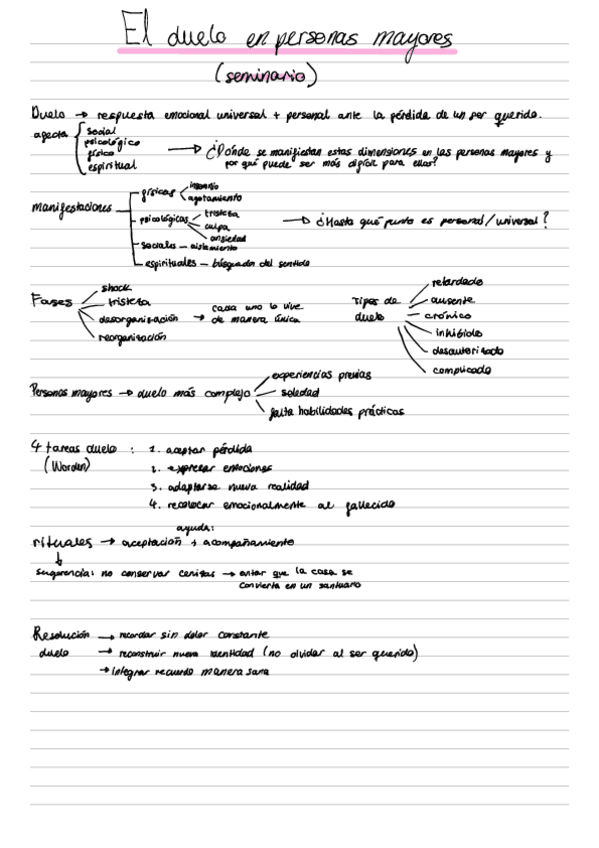 El duelo en personas mayores
(seminario)
Duelo → respuesta emocional universal + personal ante la pérdida de un ser querido.
afecta { social
psicológico
físico
espiritual
→ ¿Dónde se manifiestan estas dimensiones en las personas mayores y
por qué puede ser más difícil para ellas?
manifestaciones
físicas < insomnio
agotamiento
psicológicas
tristeza
culpa
ansiedad
sociales – aislamiento
espirituales – búsqueda del sentido
→ ¿Hasta qué punto es personal/universal?
Fases
shock
tristeza
desorganización → cada uno lo vive
de manera única
reorganización
Tipos de
duelo
retardado
ausente
crónico
inhibido
desautorizado
complicado
Personas mayores → duelo más complejo
experiencias previas
soledad
falta habilidades prácticas
4 tareas duelo : 1. aceptar pérdida
(Worden)
2. expresar emociones
3. adaptarse nueva realidad
4. recolocar emocionalmente al fallecido
ayuda:
rituales → aceptación + acompañamiento
sugerencia: no conservar cenizas → evitar que la casa se
convierta en un santuario
Resolución → recordar sin dolor constante
duelo → reconstruir nueva identidad (no olvidar al ser querido)
→ integrar recuerdo manera sana